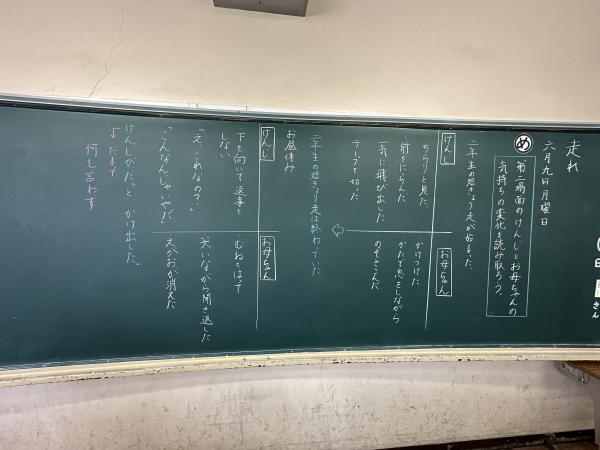 走れ
六月九日月曜日
め
第二場面のけんじとお母ちゃんの
気持ちの変化を読み取ろう。
二年生の短きょり走が始まった。
けんじ
ちらりと見た
・前をにらんだ
・一気に飛び出した
テープを切った
お母ちゃん
・かけつけた
・かたで息をしながら
のぞきこんだ
二年生の短きょり走は終わっていた
お昼休み
けんじ
下を向いて返事を
しない
「え、これなの?」
「こんなんじゃいやだ
お母ちゃん
・むねをはって
・笑いながら聞き返した
・えがおが消えた
けんじがだっと かけ出した。
↓だまって
何も言わず
日
さん